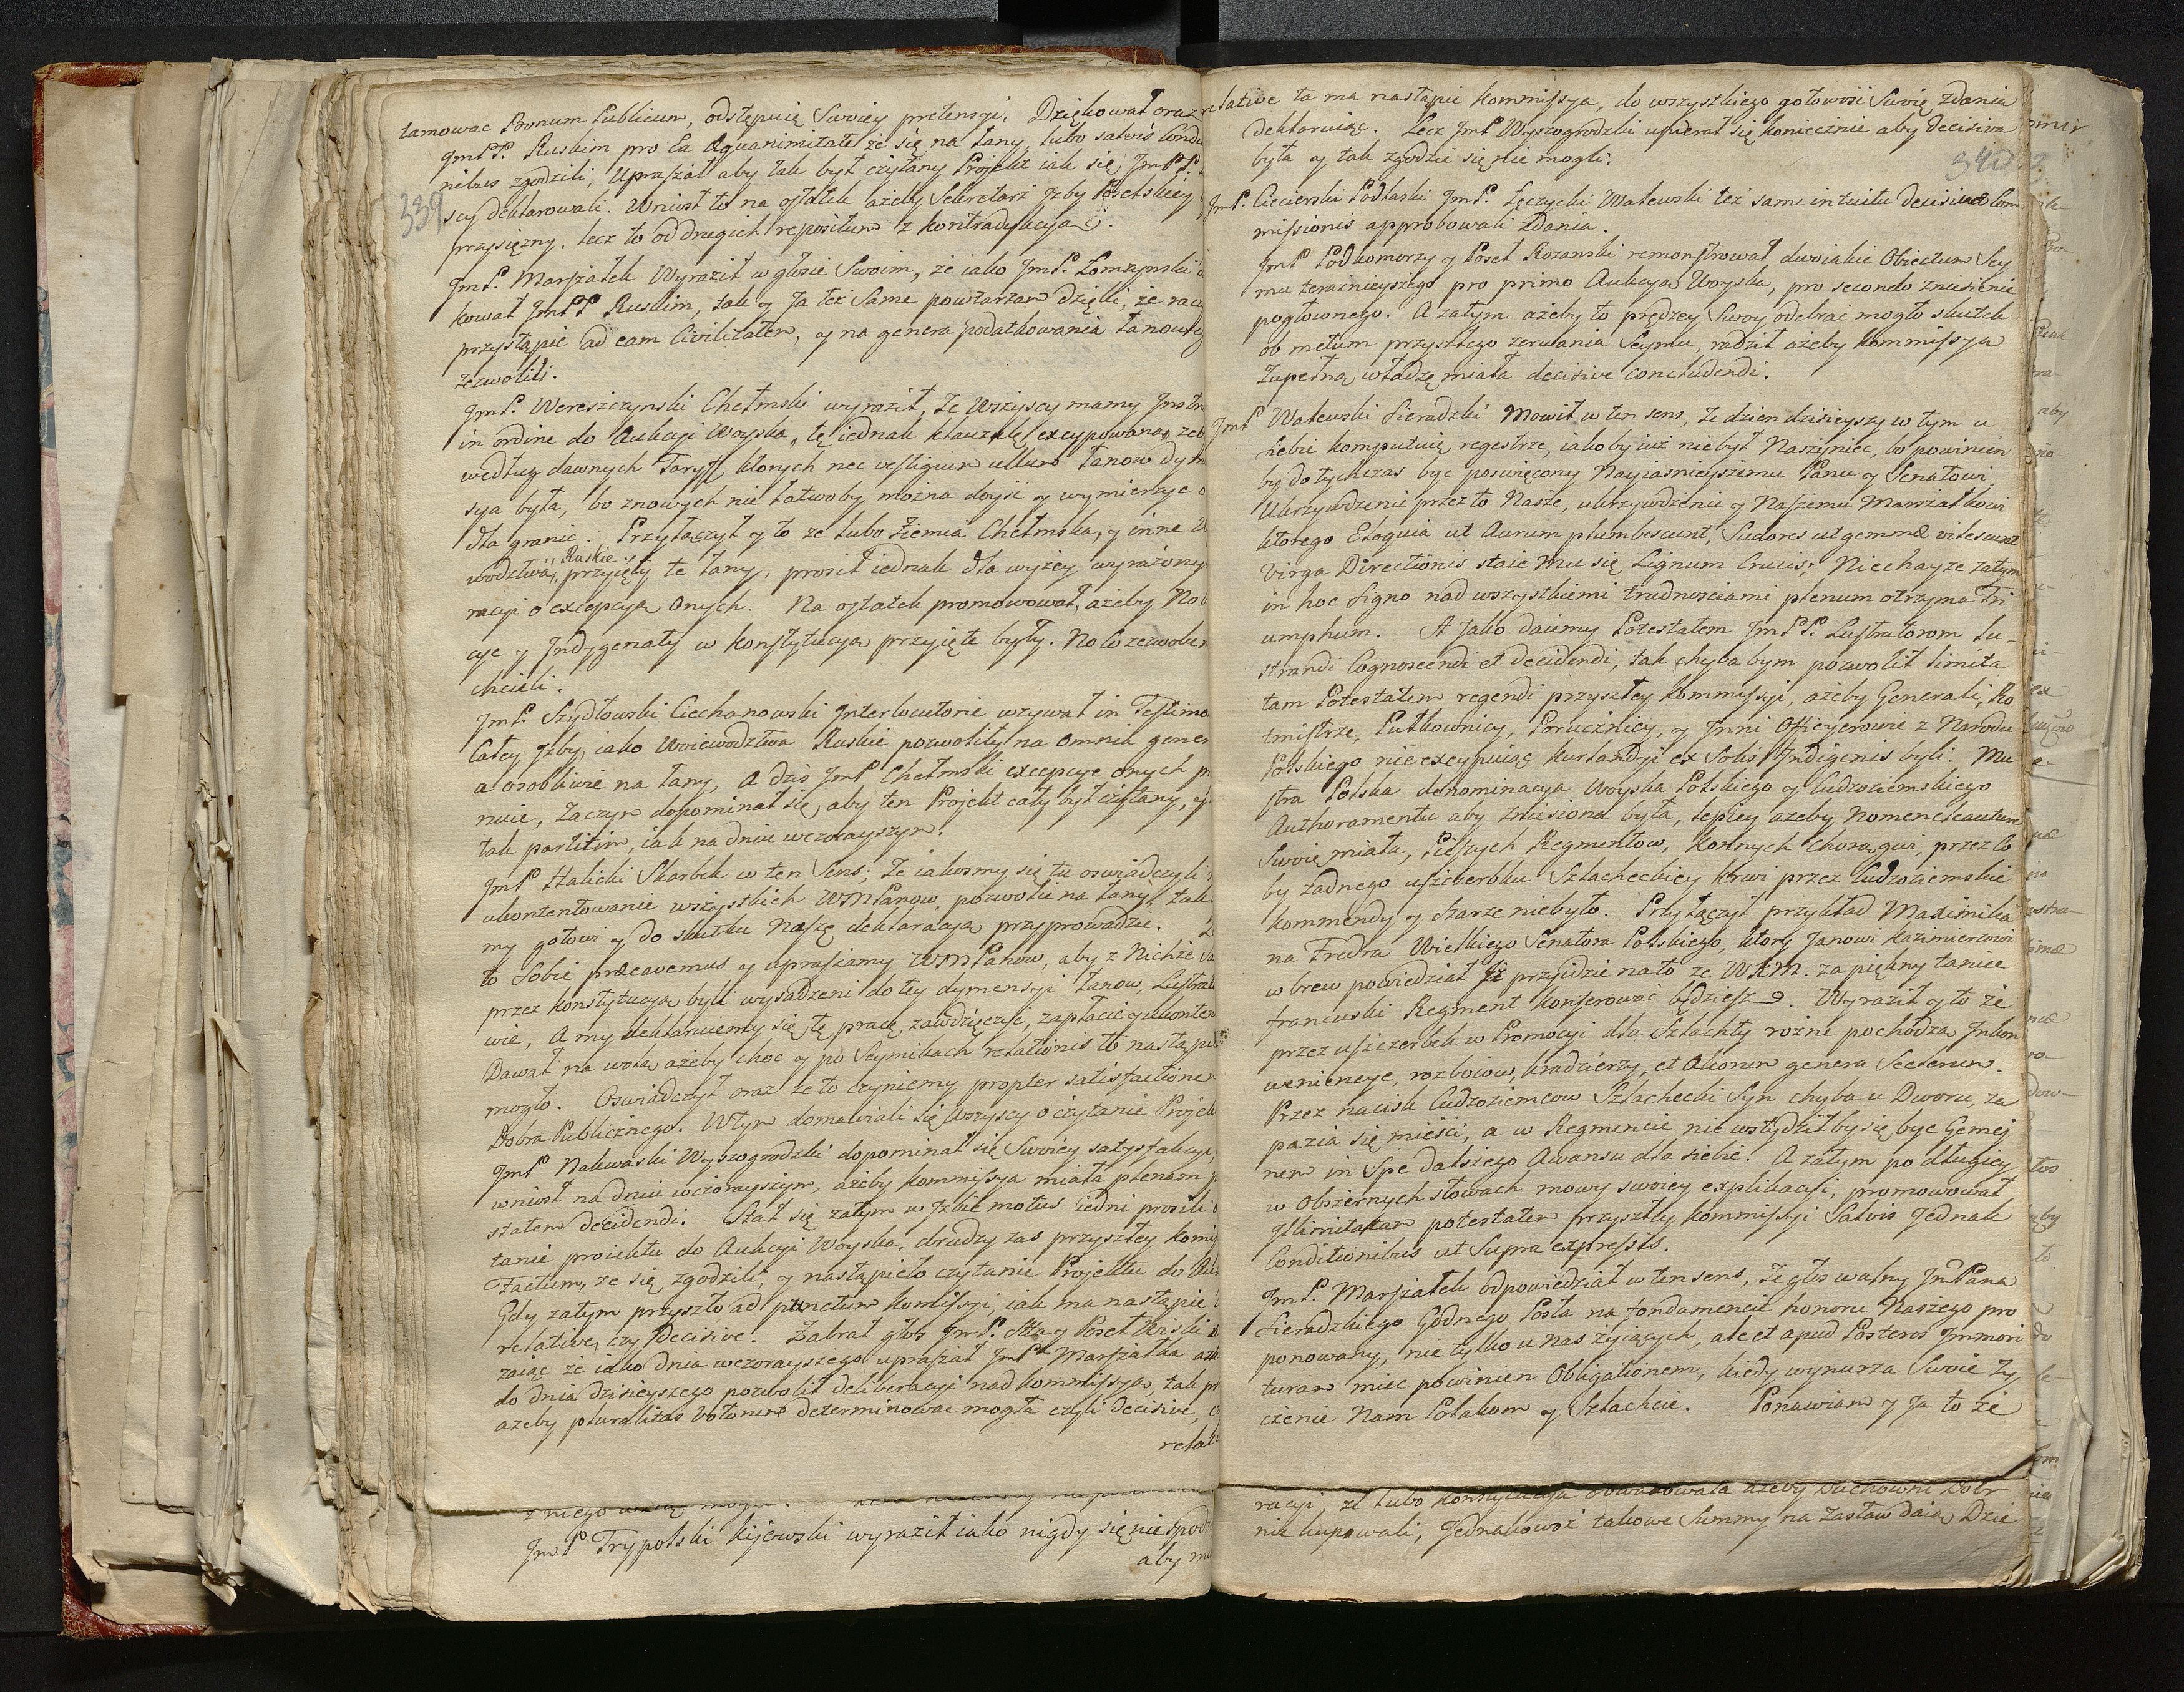 339
tamowac Bonum Publicum, odstępuię Swoiey pretensyi. Dziękował oraz
JmPP. Ruskim pro Ea Aquanimitate że się na Łany, lubo salvis Condi
nibus zgodzili, Upraszał aby tak był czytany Projekt iak się JmPP.
scy deklarowali. Wniosł to na ostatek ażeby Sekretarz Jzby Poselskiey
przysięzny, lecz to od drugich repositum z kontradykcyą.
JmP. Marszałek Wyraził w głosie Swoim, że iako JmP. Łomzynski
kował JmPP Ruskim, tak y Ja też Same powtarzam dzięki, że racz
przystąpic ad eam Civilitatem, y na genera podatkowania Łanowe
zezwolili.
JmP. Wereszczynski Chełmski wyraził, Ze Wszyscy mamy Jnstr
in ordine do Aukcyi Woyska, tę iednak klauzulę excypowaną, ze
według dawnych Taryff, ktorych nec vestigium ullum Łanow dym
sya była, bo znowych nie łatwoby można doyść y wymierzyc
dla granic. Przyłączył y to ze lubo Ziemia Chełmska, y inne W
wodztwa Ruskie przyięły te łany, prosił iednak dla wyżey wyrażony
racyi o excepcyą Onych. Na ostatek promowował, ażeby Nob
cye y Jndygenaty w konstytucyą przyięte były. No Co zezwolen
chcieli.
JmP. Szydłowski Ciechanowski Jnterlocutorie wzywał in Testimo
Całey Jzby, iako Woiewodztwa Ruskie pozwoliły na Omnia gener
a osobliwie na Łany, A dzis JmP Chełmski excepcye onych p
nuie, Zaczym dopominał się, aby ten Projekt cały był czytany, y
tak partitim, iak na dniu wczorayszym.
JmP Halicki Skarbek w ten Sens; Ze iakosmy się tu oswiadczyli
ukontentowanie wszystkich WMPanow, pozwolic na łany, tak
my gotowi y do skutku Naszę deklaracyą przyprowadzic.
to Sobie præcavemus y upraszamy WMPanow, aby z Nichże
przez konstytucyą byli wysadzeni do tey dymensyi Łanow, Lustrat
wie, A my deklaruiemy się tę pracę zawdzięczyc, zapłacic y ukonten
Dawał na wolą ażeby choc y po Seymikach relationis to nastąpi
mogło. Oswiadczył oraz że to czyniemy propter satisfactionem
Dobra Publicznego. Wtym domawiali się Wszyscy o czytanie Projek
JmP Nakwaski Wyszogrodzki dopominał się Swoiey satysfakcyi,
wniosł na dniu wczorayszym, ażeby Kommissya miała plenam p
statem decidendi. Stał się zatym w Jzbie motus iedni prosili
tanie proiektu do Aukcyi Woyska, drudzy zas przyszłey komis
Factum, ze się zgodzili, y nastąpiło czytanie Projektu do Au
Gdy zatym przyszło ad punctum komissyi, iak ma nastąpic
relative, czy Decisive. Zabrał głos JmP. Stta y Poseł Wiski
zaiąc że iako dnia wczorayszego upraszał JmP Marszałka aze
do dnia dzisieyszego pozwolił deliberacyi nad kommissyą, tak p
ażeby pluralitas Votorum determinowac mogła czyli decisive,
relat
JmP Trypolski kijowski wyraził iako nigdy się nie spodz
aby m
340
relative ta ma nastąpic kommissya, do wszystkiego gotowość Swoię Zdania
deklaruiąc. Lecz JmP Wyszogrodzki upierał się koniecznie aby decisiva
była y tak zgodzic się nie mogli.
JmP. Ciecierski Podlaski JmP. Łęczycki Walewski też sami intuitu decisivæ Com
missionis approbowali Zdania.
JmP Podkomorzy y Poseł Rozanski remonstrował, dwoiakie Obiectum Sey
mu teraznieyszego pro primo Aukcyą Woyska, pro secondo zniesienie
pogłownego. A zatym ażeby to prędzey Swoy odebrac mogło skutek
ob metum przyszłego zerwania Seymu, radził ażeby Kommissya
Zupełną władzę miała decisive concludendi.
JmP Walewski Sieradzki Mowił w ten sens, Ze dzien dzisieyszy w tym u
siebie komputuię regestrze, iakoby iuż nie był Naszyniec, bo powinien
by dotychczas byc poswięcony Nayiasnieyszemu Panu y Senatowi
Ukrzywdzenie przez to Nasze, ukrzywdzenie y Naszemu Marszałkowi
ktorego Eloquia ut Aurum plumbescunt, Sudores ut gemmæ vilescunt
Virga Directionis staie mu się Lignum Crucis; Niechayze zatym
in hoc Signo nad wszystkiemi trudnosciami plenum otrzyma Tri
umphum. A Jako daiemy Potestatem JmPP. Lustratorom Lu-
strandi Cognoscendi et decidendi, tak chyba bym pozwolił limita
tam Potestatem regendi przyszłey kommissyi, ażeby Generali, Ro
tmistrze, Pułkownicy, Porucznicy, y Jnni Officyerowie z Narodu
Polskiego nie excypuiąc Kurlandyi ex Solis Jndigenis byli. Mu
stra Polska denominacya Woyska Polskiego y Cudzoziemskiego
Authoramentu aby zniesiona była, lepiey ażeby Nomencleaturę
Swoię miała, Pieszych Regmentow, Konnych Chorągwi, przez Co
by żadnego uszczerbku Szlacheckiey krwi przez Cudzoziemskie
kommendy y Szarze niebyło. Przyłączył przykład Maximilia
na Fredra Wielkiego Senatora Polskiego, ktory Janowi Kazimierzowi
w brew powiedział iż przyidzie na to ze WKM. za piękny taniec
francuski Regment konferować będziesz. Wyraził y to że
przez uszczerbek w Promocyi dla Szlachty rożne pochodzą Jnkon
weniencye, rozboiow, kradzieży, et Aliorum genera Scelerum.
Przez nacisk Cudzoziemcow Szlachecki Syn chyba u Dworu, za
pazia się miesci, a w Regmencie nie wstydziłby się byc Gemey
nem in Spe dalszego Awansu dla siebie. A zatym po długiey
w Obszernych słowach mowy swoiey explikacyi, promowował
Jllimitatam potestatem przyszłey kommissyi Salvis Jednak
Conditionibus ut Supra expressis.
JmP. Marszałek odpowiedział w ten sens, Ze głos walny JmPana
Sieradzkiego Godnego Posła na fondamencie honoru Naszego pro
ponowany, nie tylko u nas żyiących, ale et apud Posteros Jmmori
turam miec powinien Obligationem, kiedy wynurza Swoie Zy
czenie Nam Polakom y Szlachcie. Ponawiam y Ja to że
racyi, ze lubo konstytucya obwarowała ażeby Duchowni Dobr
nie kupowali, Jednakowoż takowe Summy na Zastaw daią Dzie